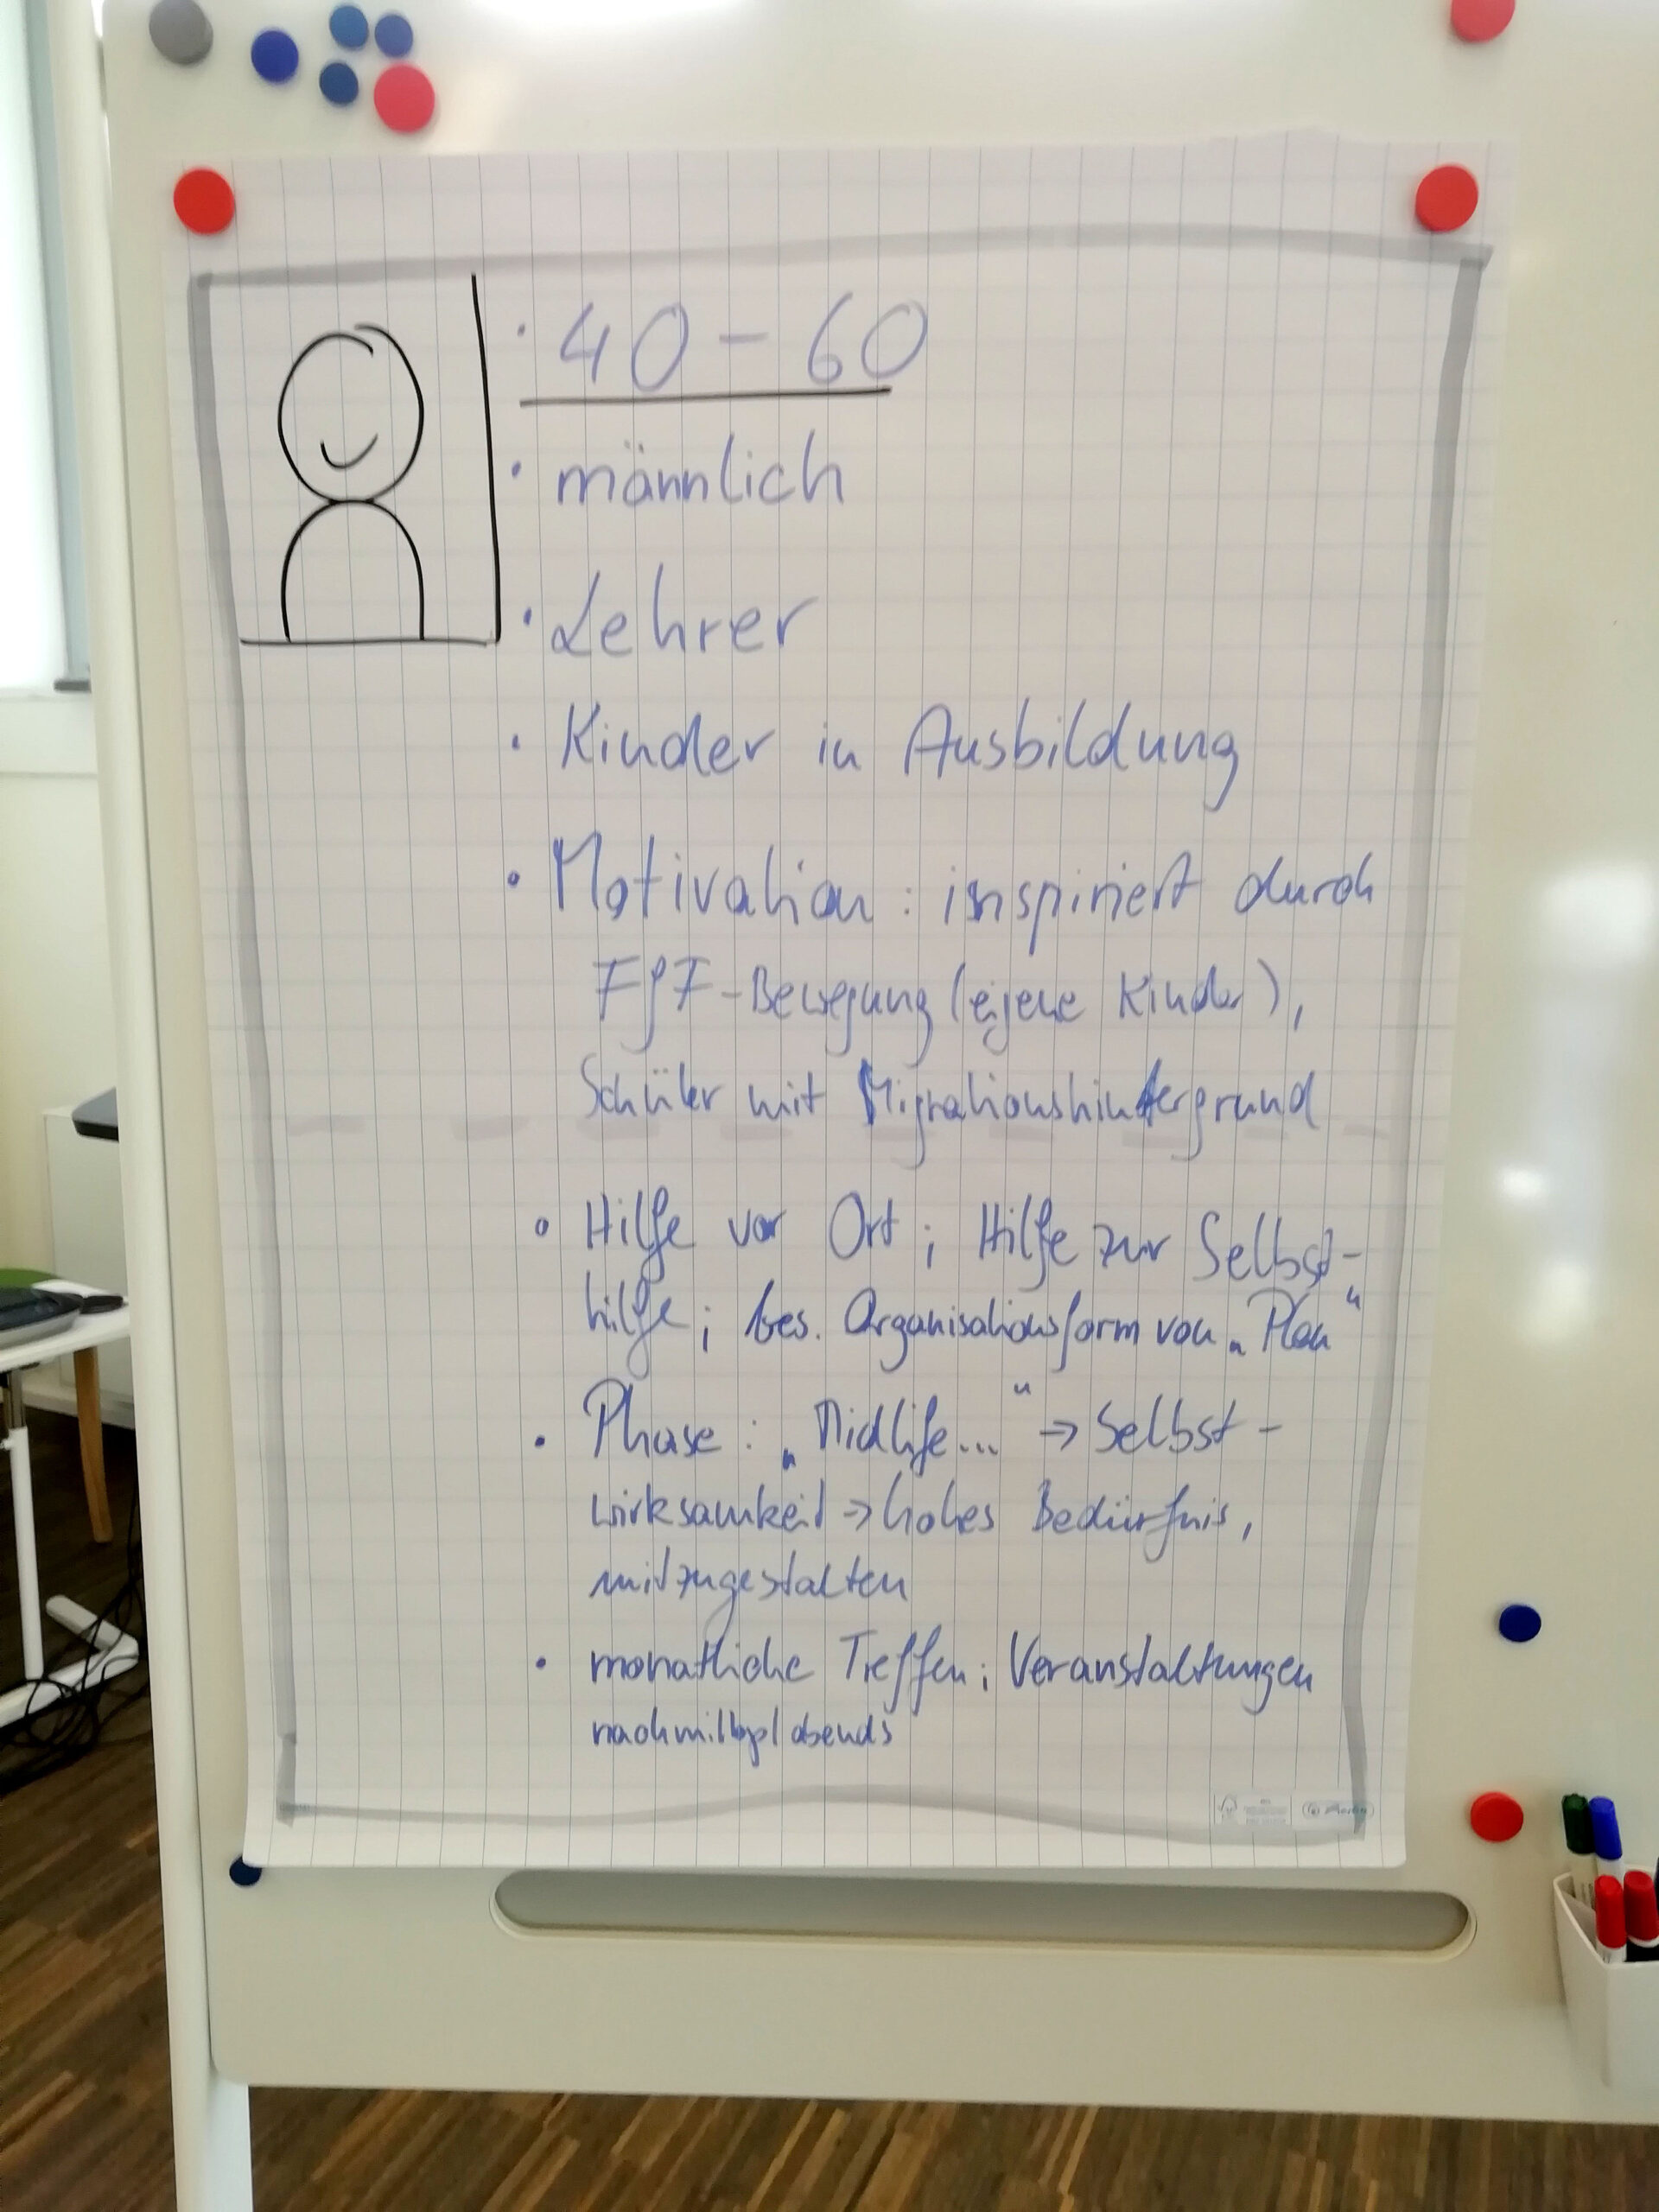 · 40 – 60
· männlich
· Lehrer
· Kinder in Ausbildung
· Motivation : inspiriert durch
FfF-Bewegung (eigene Kinder),
Schüler mit Migrationshintergrund
· Hilfe vor Ort ; Hilfe zur Selbst-
hilfe ; bes. Organisationsform von „Plan“
· Phase : „Midlife..." → Selbst-
wirksamkeit → hohes Bedürfnis,
mitzugestalten
· monatliche Treffen ; Veranstaltungen
abends